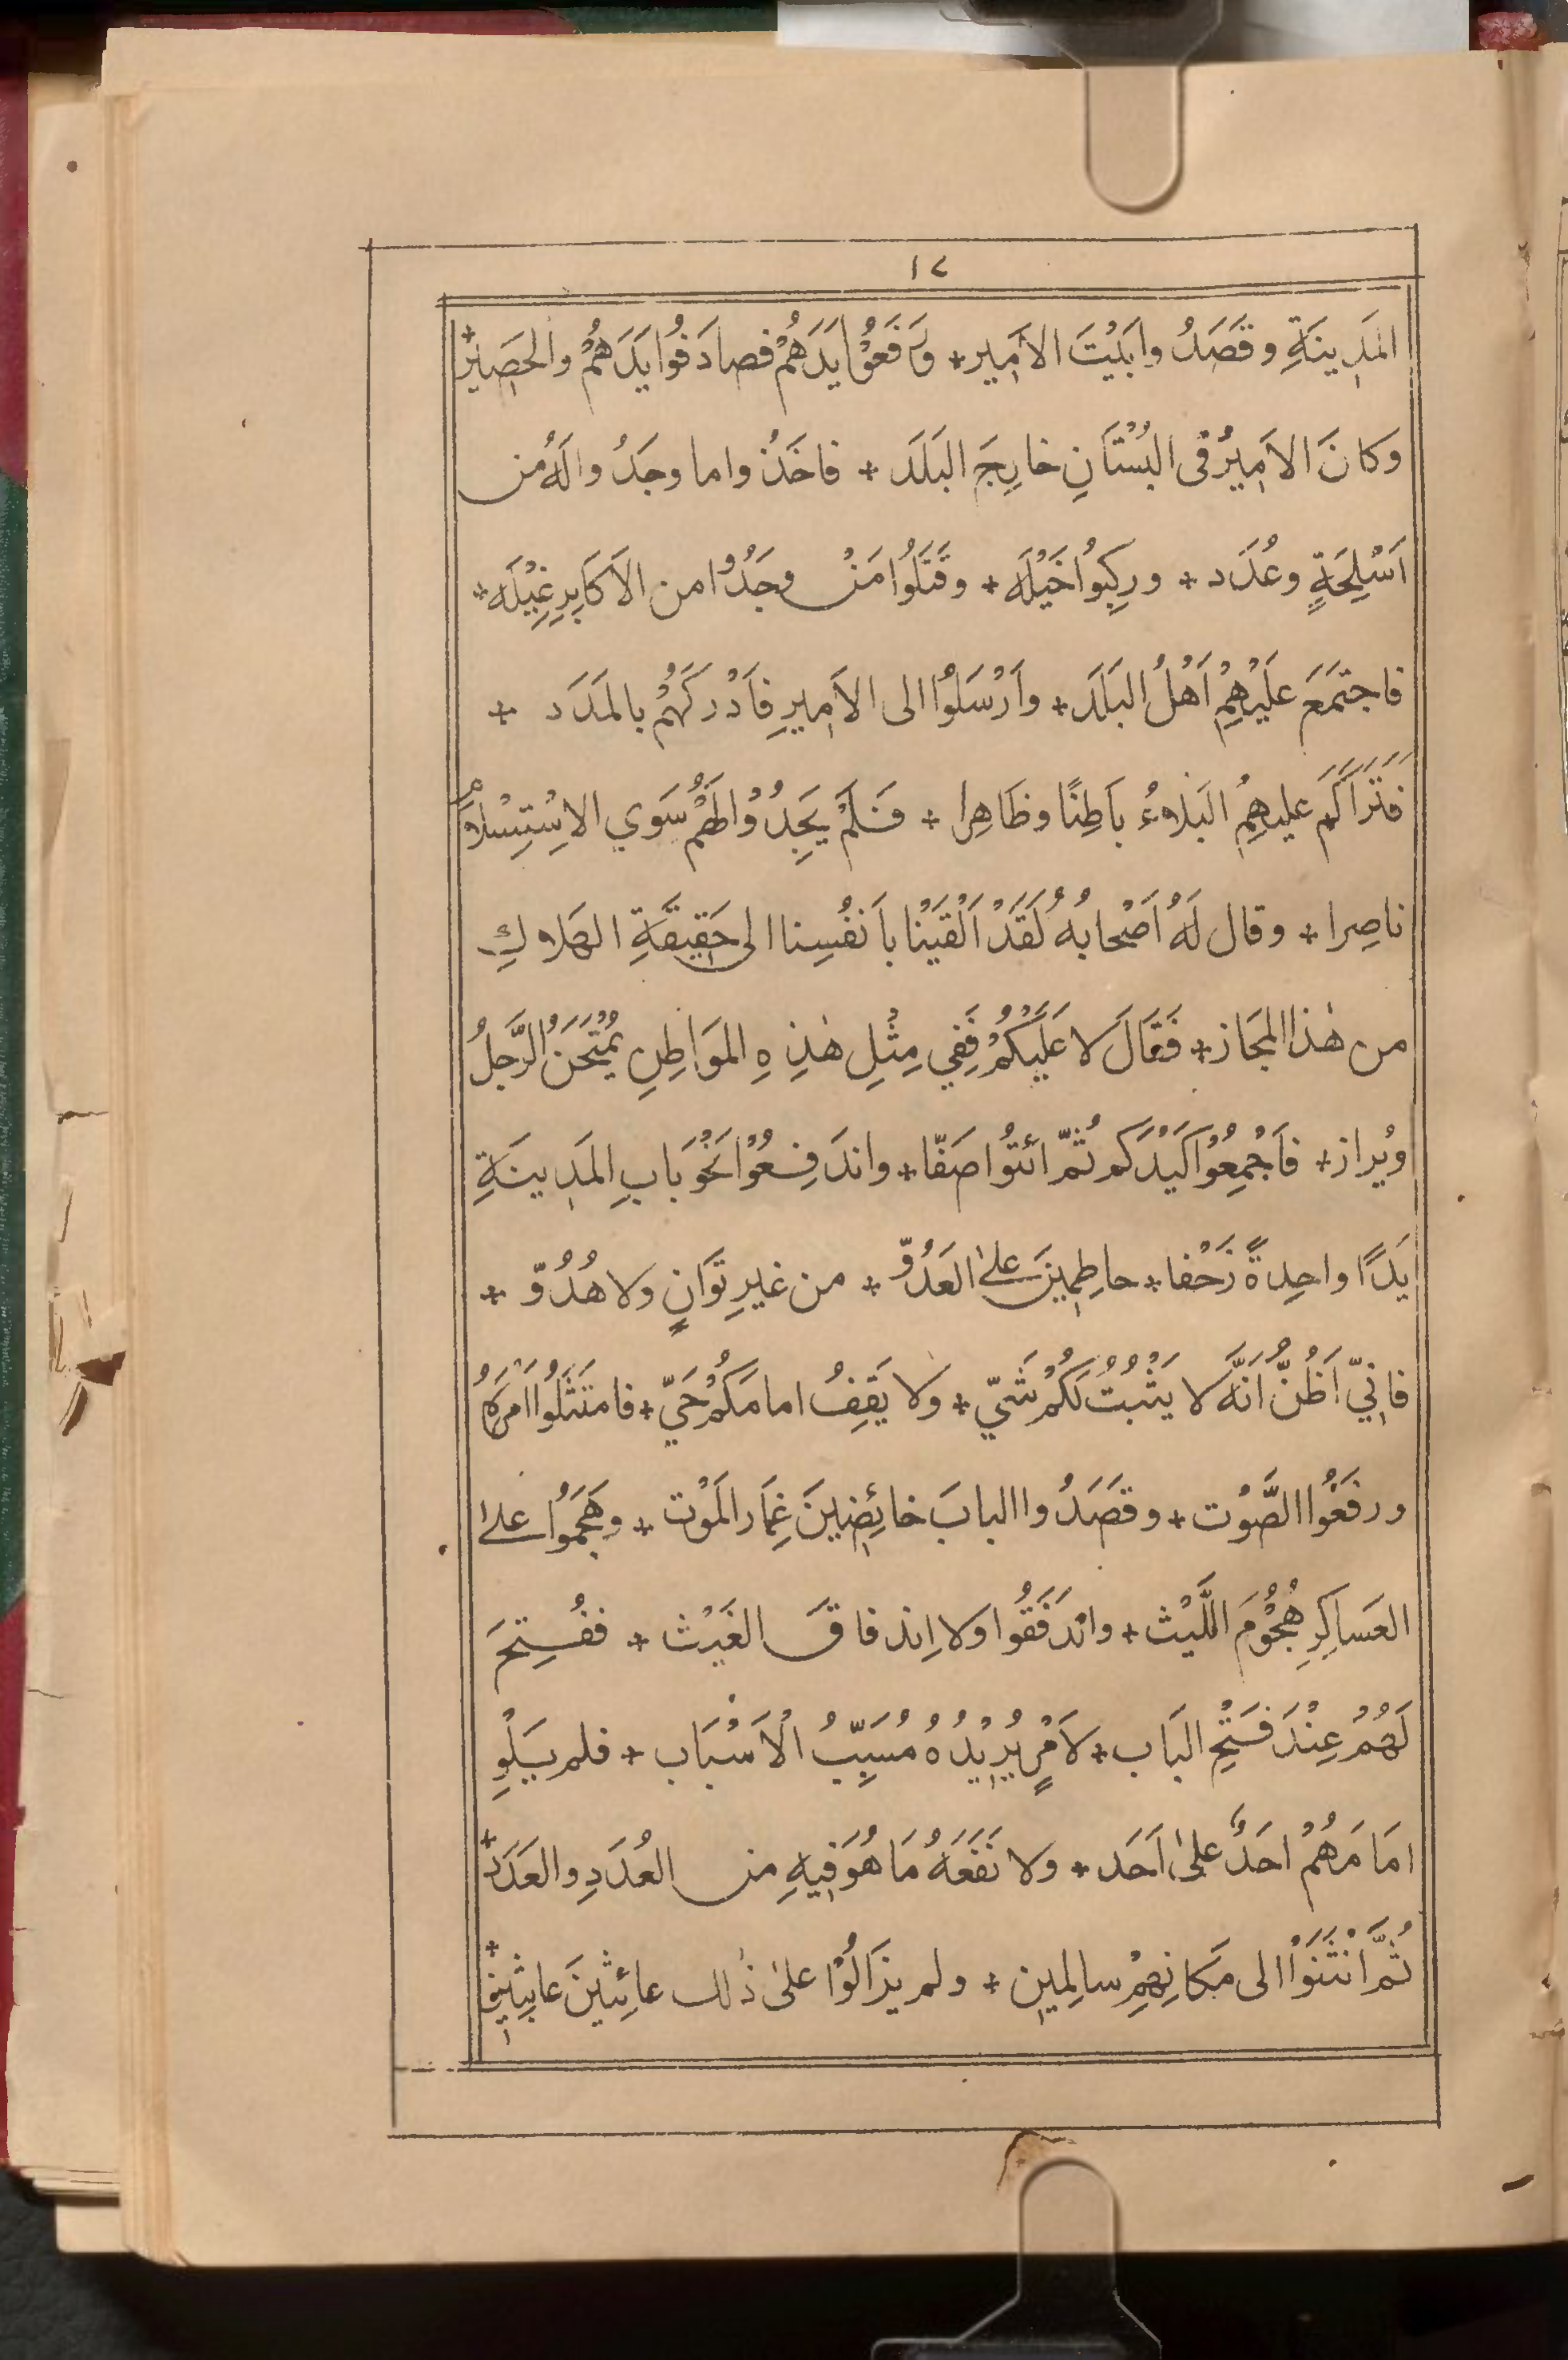 ١٢
المَدِينَةِ وقَصَدُوا بَيْتَ الأَمِير * ورَفَعُوْا يَدَهُمْ فصادَفُوا يَدَهُمْ والحَصِيْرُ *
وَكانَ الاَمِيْرُ فى البُسْتَانِ خارِجَ البَلَد * فاخَذُوا ما وجَدُوا لَهُ من
اَسْلِحَةٍ وعُدَد * ورِكِبُوا خَيْلَه * وقَتَلُوا مَنْ وجَدُوْا من الاَكَابِرِ غِيْلَه *
فاجتَمَعَ عَلَيْهِمْ اَهْلُ البَلَد * واَرْسَلُوْا الى الاَمِيرِ فاَدْرَكَهُمْ بالمَدَد *
فَتَراَكَم عليهِمُ البَلاءُ بَاطِنًا وظَاهِرا * فَلَمْ يَجِدُوْا لَهُمْ سَوي الاِسْتِسْلاَمِ
ناصِرا * وقال لَهُ اَصْحابُهُ لَقَدْ اَلْقَيْنا باَنفُسِنا الى حَقِيقَةِ الهَلاكِ
من هٰذا المَجَاز * فَقَالَ لا عَلَيْكُمْ فَفِي مِثْلِ هٰذِهِ المَوَاطِنِ يُمْتَحَنُ الرَّجلُ
ويُراز * فاَجْمِعُوْا كَيْدَكم ثُمّ ائتُوا صَفّا * واندَفِعُوْا نَحْوَ بَابِ المَدِينَةِ
يَدًا واحِدةً زَحْفا * حاطِمِينَ علىٰ العَدُوّ * من غيرِ تَوَانٍ ولا هُدُوّ *
فاِنِّي اَظُنُّ اَنَّه لا يَثْبُتُ لَكُمْ شَيّ * ولا يَقِفُ امامَكُمْ حَيّ * فامتَثَلُوا اَمْرَهُ
ورفَعُوا الصَّوْت * وقصَدُوا البابَ خائِضِينَ غِمَارَ المَوْت * وهَجَمُوا علىٰ
العَساكِرِ هُجُوْمَ اللَّيْث * وانْدَفَقُوا ولا اِندِفاقَ الغَيْث * ففُتِحَ
لَهُمْ عِنْدَ فَتْحِ البَاب * لاَمْرٍ يُرِيْدُهُ مُسَبِّبُ الْاَسْبَاب * فلم يَلْوِ
امَامَهُمْ احَدٌ علىٰ اَحَد * ولا نَفَعَهُ مَا هُوَ فِيهِ من العُدَدِ والعَدَد *
ثُمَّ انْثَنَوْا الى مَكانِهِمْ سالِمِين * ولم يزَالُوْا علىٰ ذٰلك عائِثِينَ عابِثِين *